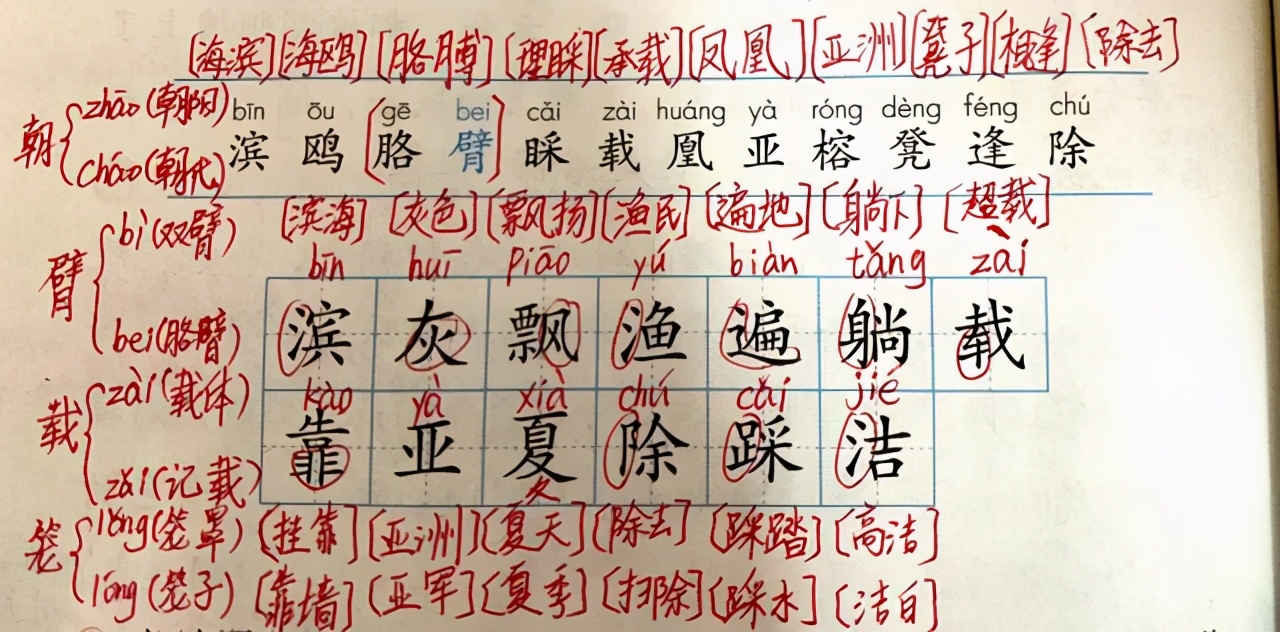 [海滨] [海鸥] [胳膊] [理睬] [承载] [凤凰] [亚洲] [凳子] [相逢] [除去]
朝 zhāo (朝阳) cháo (朝代)
bīn ōu gē bei cǎi zài huáng yà róng dèng féng chú
滨 鸥 胳 臂 睬 载 凰 亚 榕 凳 逢 除
臂 bì (双臂) bei (胳臂)
[滨海] [灰色] [飘扬] [渔民] [遍地] [躺下] [超载]
bīn huī piāo yú biàn tǎng zài
滨 灰 飘 渔 遍 躺 载
载 zài (载体) zǎi (记载)
kào yà xià chú cǎi jié
靠 亚 夏 除 踩 洁
夂
笼 lǒng (笼罩) lóng (笼子)
[挂靠] [亚洲] [夏天] [除去] [踩踏] [高洁]
[靠墙] [亚军] [夏季] [扫除] [踩水] [洁白]